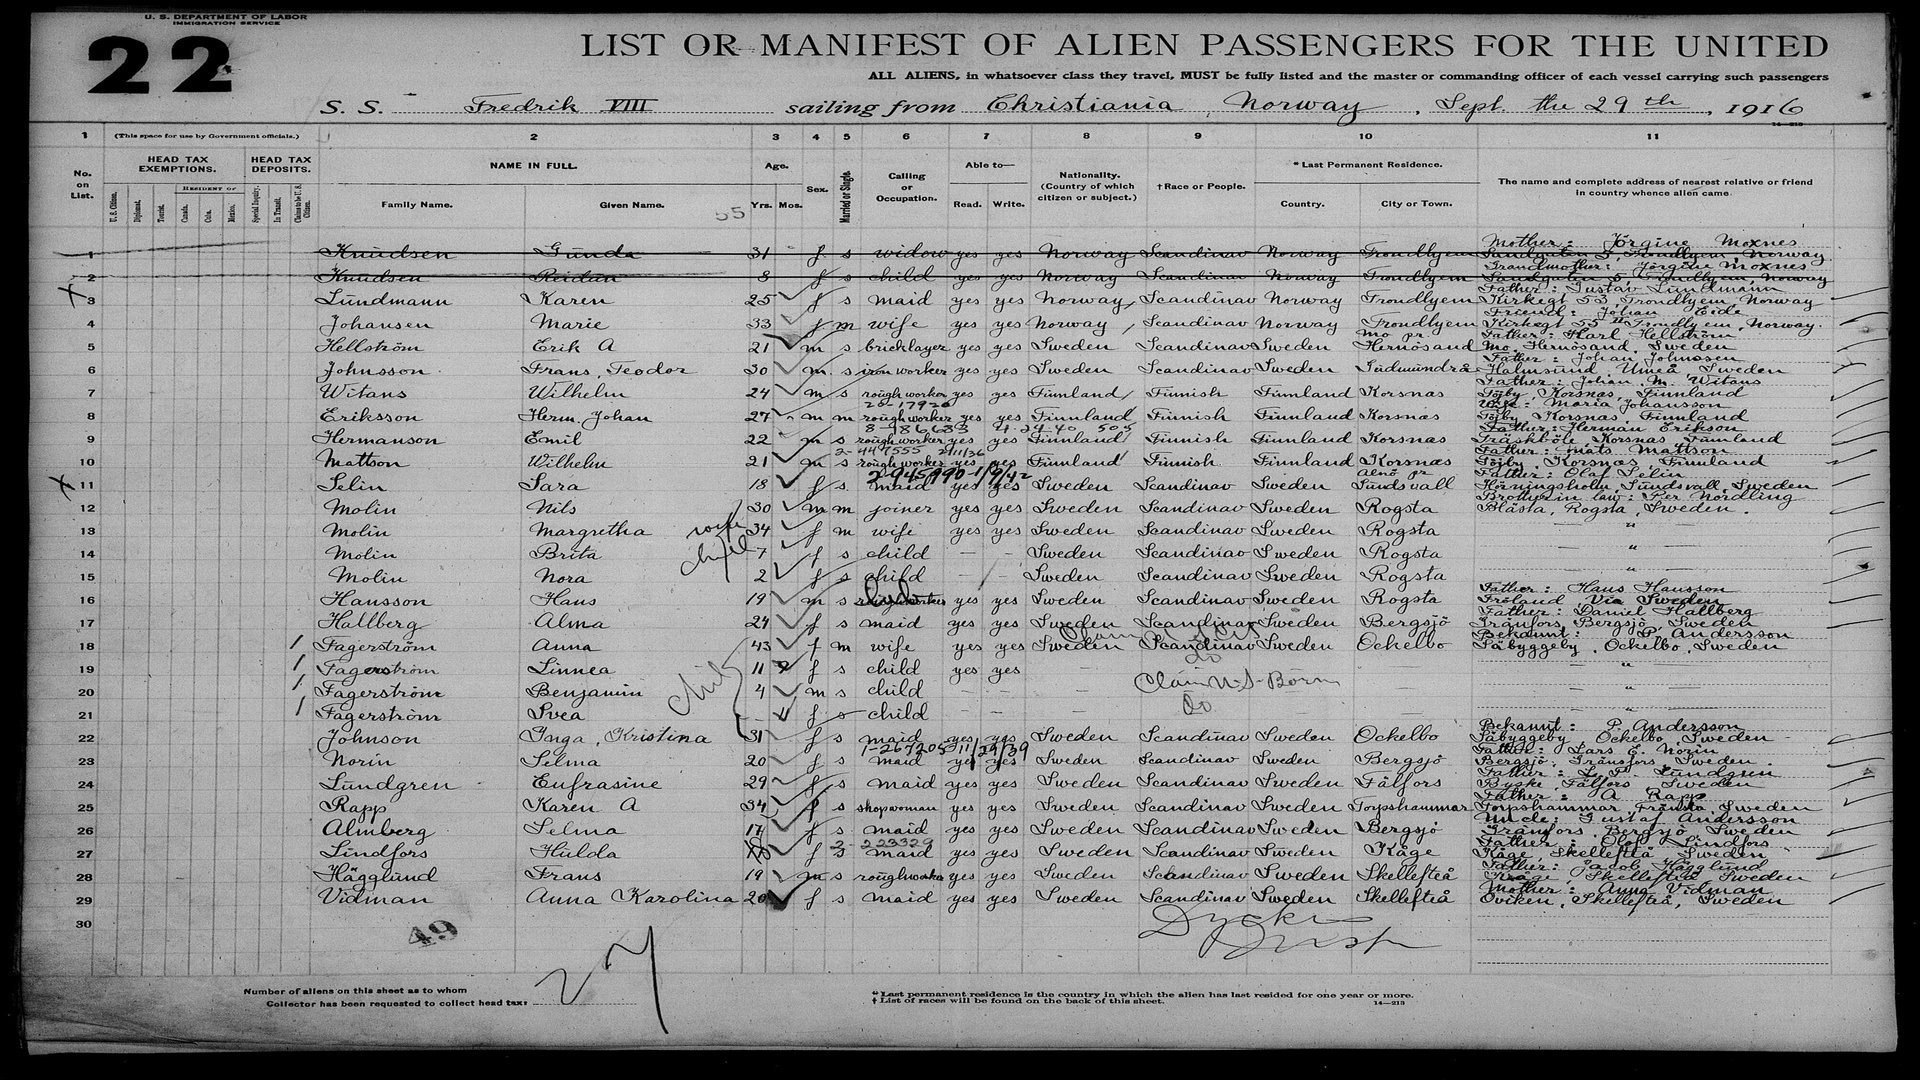 U. S. DEPARTMENT OF LABOR
IMMIGRATION SERVICE
22
LIST OR MANIFEST OF ALIEN PASSENGERS FOR THE UNITED
ALL ALIENS, in whatsoever class they travel, MUST be fully listed and the master or commanding officer of each vessel carrying such passengers
S. S. Fredrik VIII sailing from Christiania, Norway, Sept. the 29th, 1916
14—213
1 (This space for use by Government officials.) 2 3 4 5 6 7 8 9 10 11
No. on List. HEAD TAX EXEMPTIONS. HEAD TAX DEPOSITS. NAME IN FULL. Age. Sex. Married or Single. Calling or Occupation. Able to— Nationality. (Country of which citizen or subject.) † Race or People. * Last Permanent Residence. The name and complete address of nearest relative or friend in country whence alien came.
U.S. Citizen. Diplomat. Tourist. RESIDENT OF Canada. Cuba. Mexico. Special Inquiry. In Transit. Claims to be U. S. Citizen. Family Name. Given Name. Yrs. Mos. Read. Write. Country. City or Town.
1 Knudsen Gunda 31 f s widow yes yes Norway Scandinav Norway Trondhjem Mother: Jörgine Moxnes Trondhjem, Norway
2 Knudsen Reidun 8 f s child yes yes Norway Scandinav Norway Trondhjem Grandmother: Jörgine Moxnes Trondhjem, Norway
3 Lundmann Karen 25 f s maid yes yes Norway Scandinav Norway Trondhjem Father: Gustav Lundmann Kirkegt 53, Trondhjem, Norway
4 Johansen Marie 33 f m wife yes yes Norway Scandinav Norway Trondhjem Friend: Johan Eide Kirkegt 55 Trondhjem, Norway.
5 Hellström Erik A 21 m s bricklayer yes yes Sweden Scandinav Sweden Mo pr Hernösand Father: Karl Hellström Mo, Hernösand, Sweden
6 Johnsson Frans, Teodor 30 m s iron worker yes yes Sweden Scandinav Sweden Gudmundrå Father: Johan Johnssen Holmsund, Umeå, Sweden
7 Witans Wilhelm 24 m s rough worker yes yes Finnland Finnish Finnland Korsnäs Father: Johan M. Witans Töjby, Korsnäs, Finnland
8 Eriksson Herm. Johan 27 m m rough worker yes yes Finnland Finnish Finnland Korsnäs Wife: Maria Johansson Töjby, Korsnäs, Finnland
9 Hermanson Emil 22 m s rough worker yes yes Finnland Finnish Finnland Korsnäs Father: Herman Erikson Träskböle, Korsnäs, Finnland
10 Mattson Wilhelm 21 m s rough worker yes yes Finnland Finnish Finnland Korsnäs Father: Mats Mattson Töjby, Korsnäs, Finnland
11 Selin Sara 18 f s maid yes yes Sweden Scandinav Sweden Alnö pr Sundsvall Father: Olof Selin Hörningsholm, Sundsvall, Sweden
12 Molin Nils 30 m m joiner yes yes Sweden Scandinav Sweden Rogsta Brother in law: Per Nordling Blästa, Rogsta, Sweden.
13 Molin Margretha wife 34 f m wife yes yes Sweden Scandinav Sweden Rogsta — " —
14 Molin Brita child 7 f s child — — Sweden Scandinav Sweden Rogsta — " —
15 Molin Nora 2 f s child — — Sweden Scandinav Sweden Rogsta — " —
16 Hansson Hans 19 m s yes yes Sweden Scandinav Sweden Rogsta Father: Hans Hansson Fröland Via Sweden
17 Hallberg Alma 24 f s maid yes yes Sweden Scandinav Sweden Bergsjö Father: Daniel Hallberg Gränfors, Bergsjö, Sweden
18 Fagerström Anna 43 f m wife yes yes Sweden Scandinav Sweden Ockelbo Bekannt: P. Andersson Säbyggeby, Ockelbo, Sweden
19 Fagerström Linnea 11 f s child yes yes — " —
20 Fagerström Benjamin 4 m s child — — Claim U.S. Born — " —
21 Fagerström Svea 4 f s child — — Do — " —
22 Johnson Inga, Kristina 31 f s maid yes yes Sweden Scandinav Sweden Ockelbo Bekannt: P. Andersson Säbyggeby, Ockelbo, Sweden
1-267205 11/29/39
23 Norin Selma 20 f s maid yes yes Sweden Scandinav Sweden Bergsjö Father: Lars E. Norin Bergsjö, Gränsfors, Sweden.
24 Lundgren Eufrasine 29 f s maid yes yes Sweden Scandinav Sweden Fälfors Father: L. P. Lundgren Byske, Fälfors, Sweden
25 Rapp Karen A 34 f s shopwoman yes yes Sweden Scandinav Sweden Torpshammar Father: A Rapp Torpshammar, Fränsta, Sweden
26 Almberg Selma 17 f s maid yes yes Sweden Scandinav Sweden Bergsjö Uncle: Gustaf Andersson Gränfors, Bergsjö, Sweden
2-223329
27 Lindfors Hulda 18 f s maid yes yes Sweden Scandinav Sweden Kåge Father: Olof Lindfors Kåge, Skellefteå, Sweden
28 Hägglund Frans 19 m s rough worker yes yes Sweden Scandinav Sweden Skellefteå Father: Jacob Hägglund Kåge, Skellefteå, Sweden
29 Vidman Anna Karolina 20 f s maid yes yes Sweden Scandinav Sweden Skellefteå Mother: Anna Vidman Oviken, Skellefteå, Sweden
30
49
27
Number of aliens on this sheet as to whom
Collector has been requested to collect head tax:
* Last permanent residence is the country in which the alien has last resided for one year or more.
† List of races will be found on the back of this sheet.
14—213